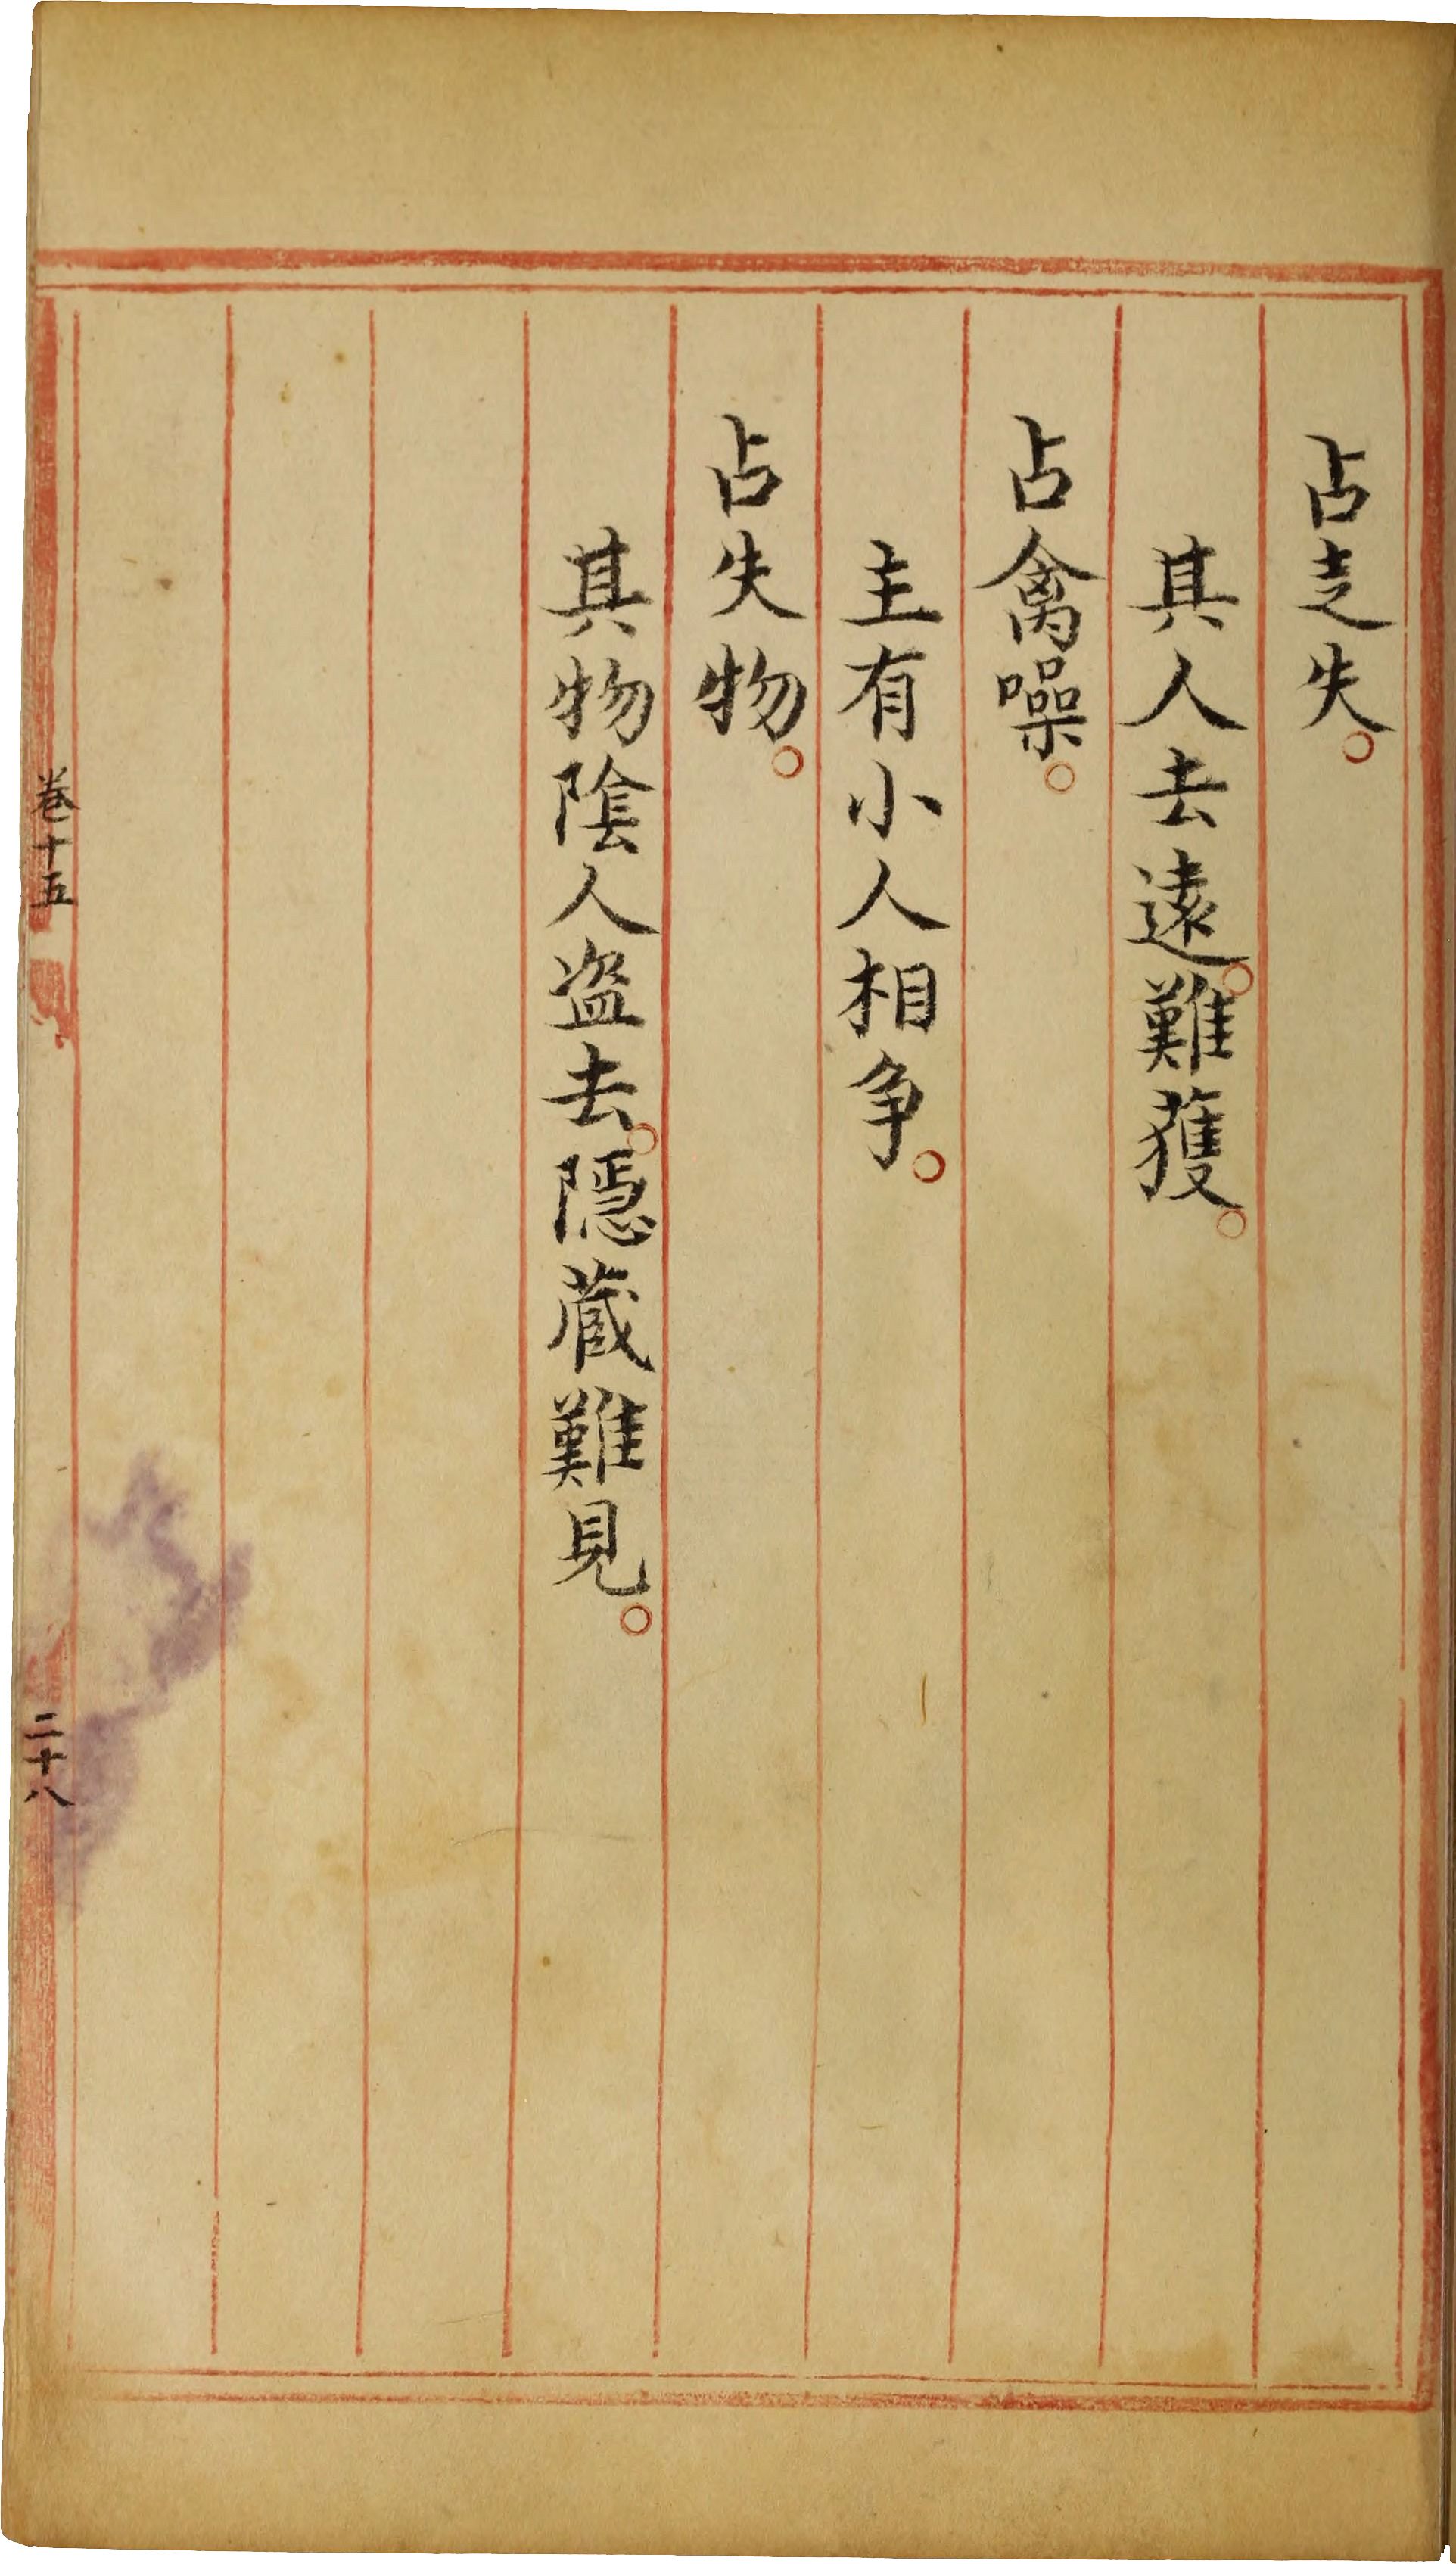 占走失。
其人去遠。難獲。
占禽噪。
主有小人相争。
占失物。
其物陰人盗去。隱蔵難見。
卷十五
二十八